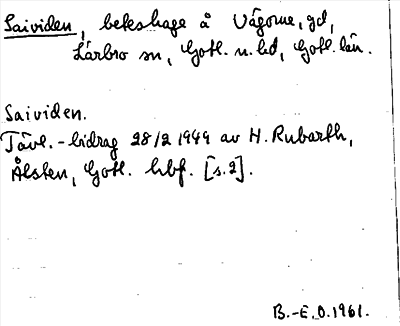 Saividen, beteshage å Vägome, gd,
Lärbro sn, Gotl. n. hd, Gotl. län.
Saividen.
Tävl.-bidrag 28/2 1949 av H. Rubarth,
Ålsten, Gotl. hbf. [s. 2].
B.-E. O. 1961.